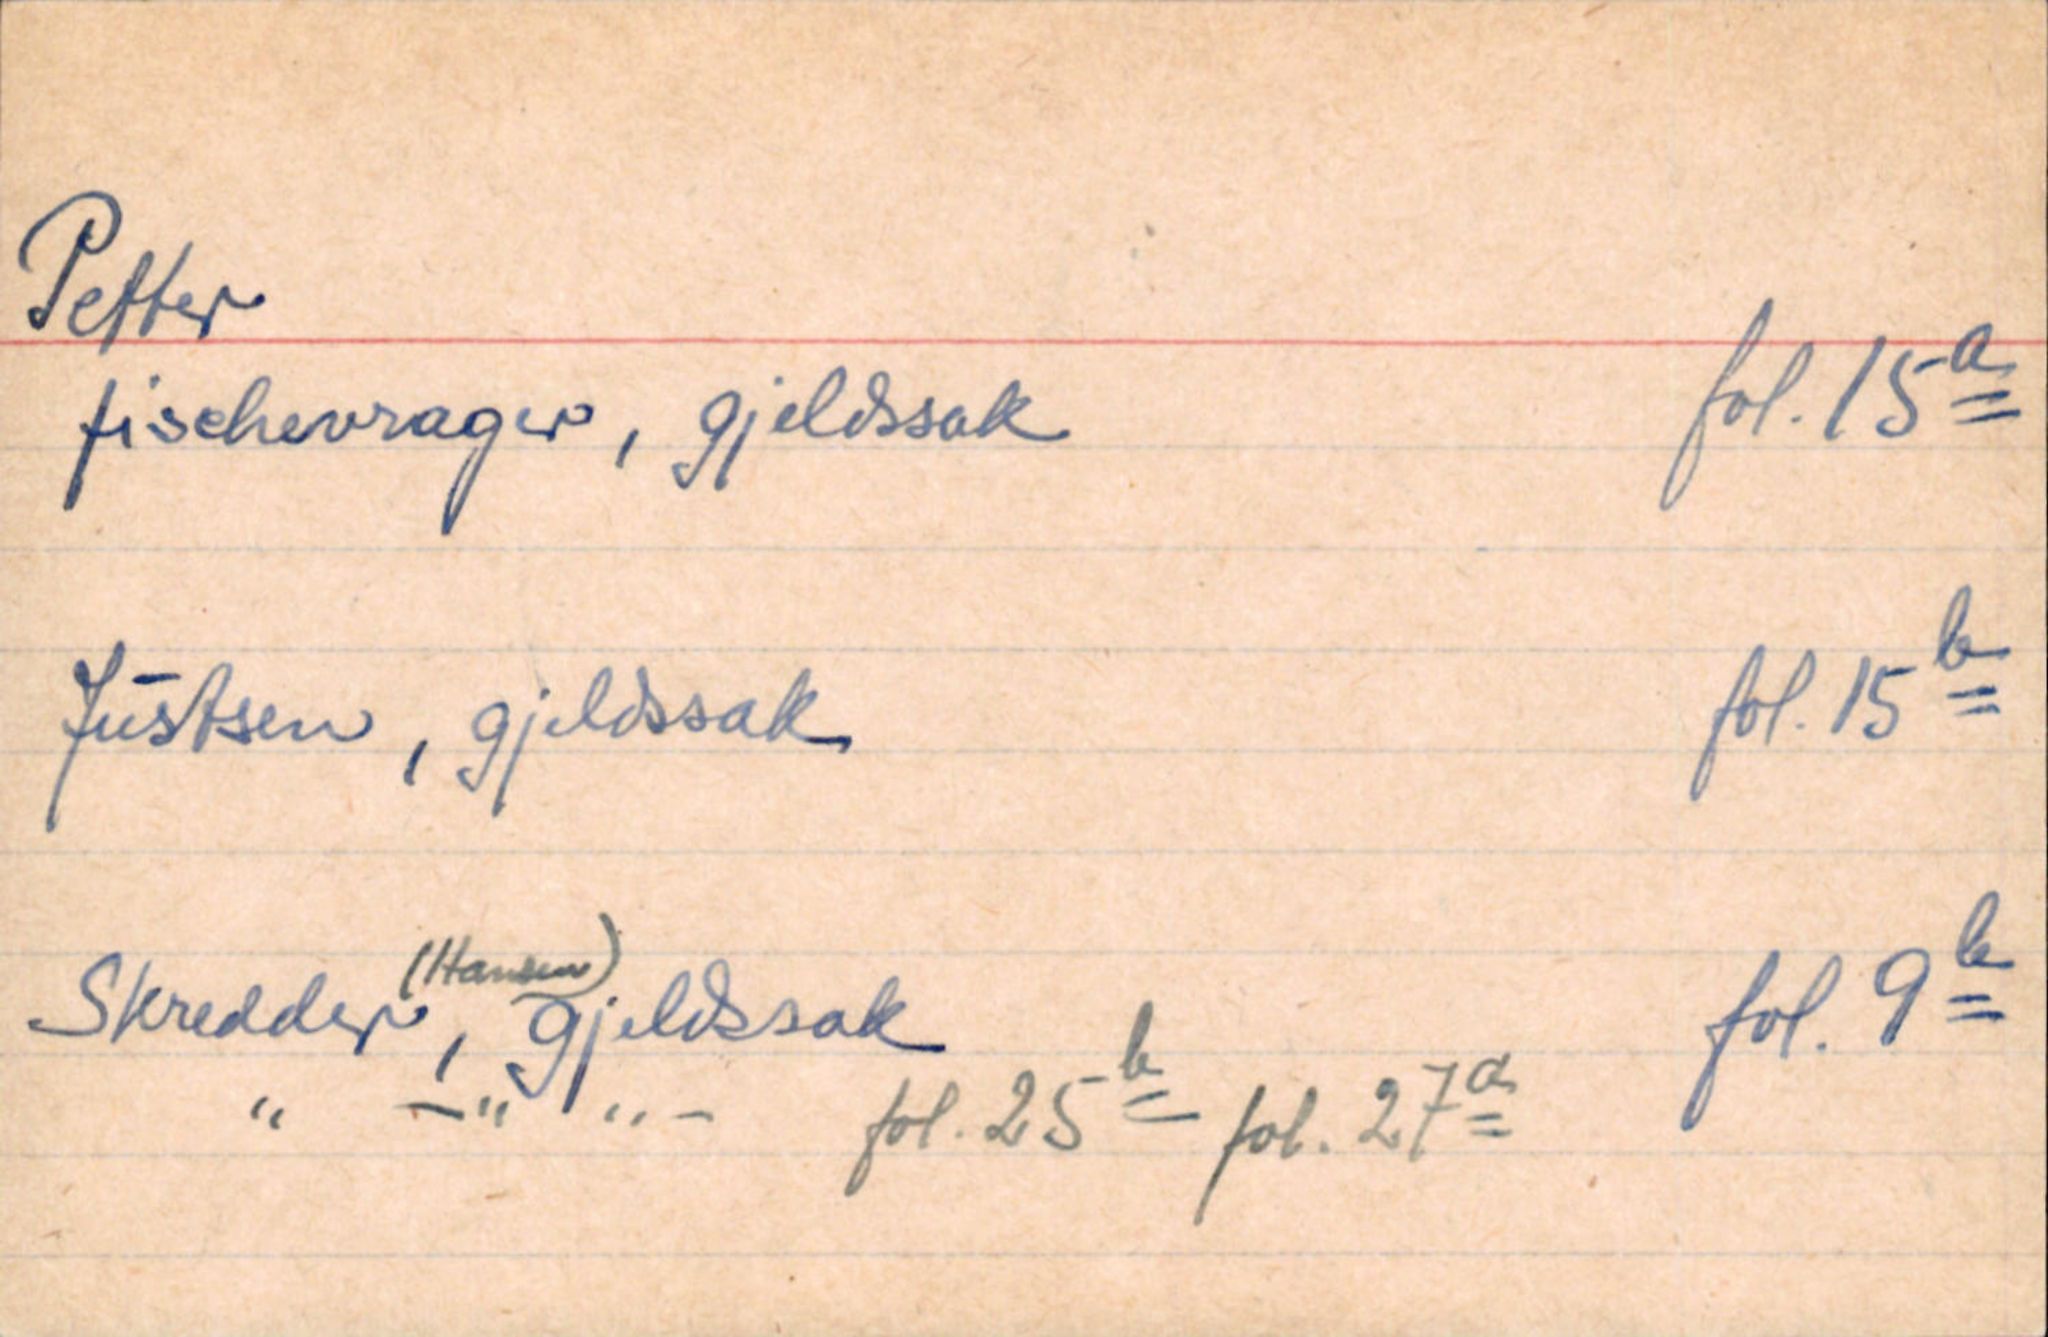 Petter
fischevrager, gjeldssak fol. 15a
Justsen, gjeldssak fol. 15b
Skredder (Hansen), gjeldssak fol. 9b
" —" "— fol. 25b fol. 27a